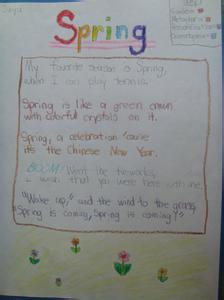 Spring
My favorite season is Spring,
when I can play tennis.
Spring is like a green crown
with colorful crystals on it.
Spring, a celebration 'cause
it's the Chinese New Year.
BOOM! Went the fireworks,
I wish that you were here with me.
"Wake up," said the wind to the grass,
"Spring is coming, Spring is coming!"